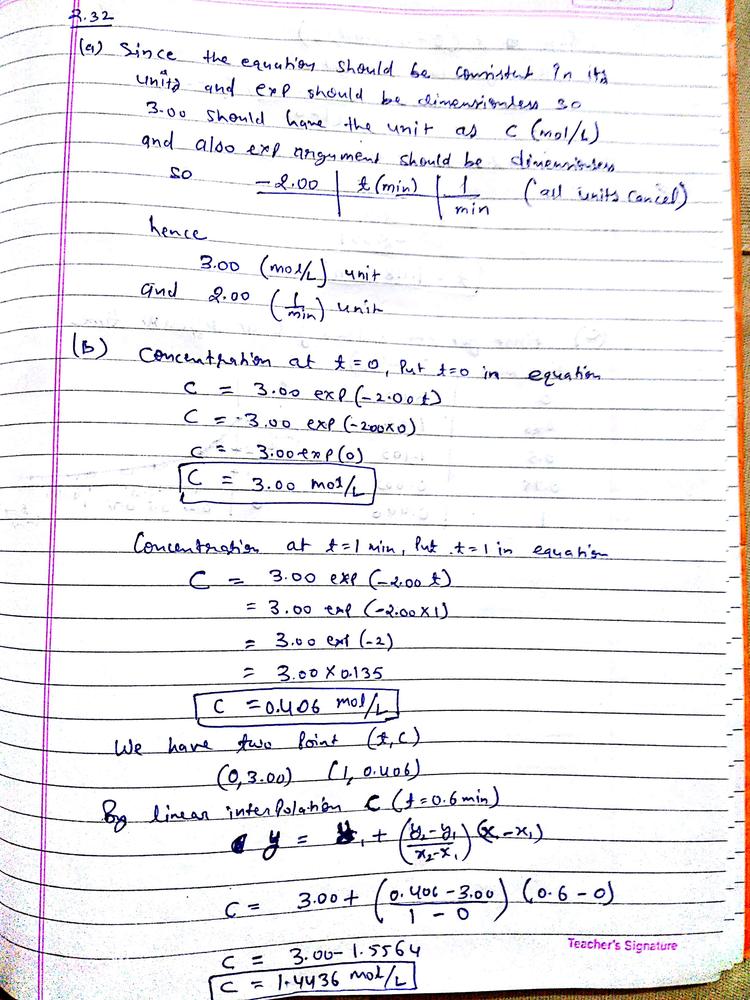 2.32
(a) Since the equation should be consistent in its
units and exp should be dimensionless so
3.00 should have the unit as C (mol/L)
and also exp argument should be dimensionless
so -2.00 | t (min) | 1/min (all units cancel)
hence
3.00 (mol/L) unit
and 2.00 (1/min) unit
(B) Concentration at t=0, Put t=0 in equation
C = 3.00 exp(-2.00t)
C = 3.00 exp(-200×0)
C = 3.00 exp(0)
C = 3.00 mol/L
Concentration at t=1 min, Put t=1 in equation
C = 3.00 exp (-2.00 t)
= 3.00 exp (-2.00×1)
= 3.00 exp (-2)
= 3.00 × 0.135
C = 0.406 mol/L
We have two Point (t, C)
(0, 3.00) (1, 0.406)
By linear interpolation C (t=0.6 min)
y = y₁ + (y₂-y₁/x₂-x₁) (x-x₁)
C = 3.00 + (0.406-3.00/1-0) (0.6-0)
Teacher's Signature
C = 3.00-1.5564
C = 1.4436 mol/L